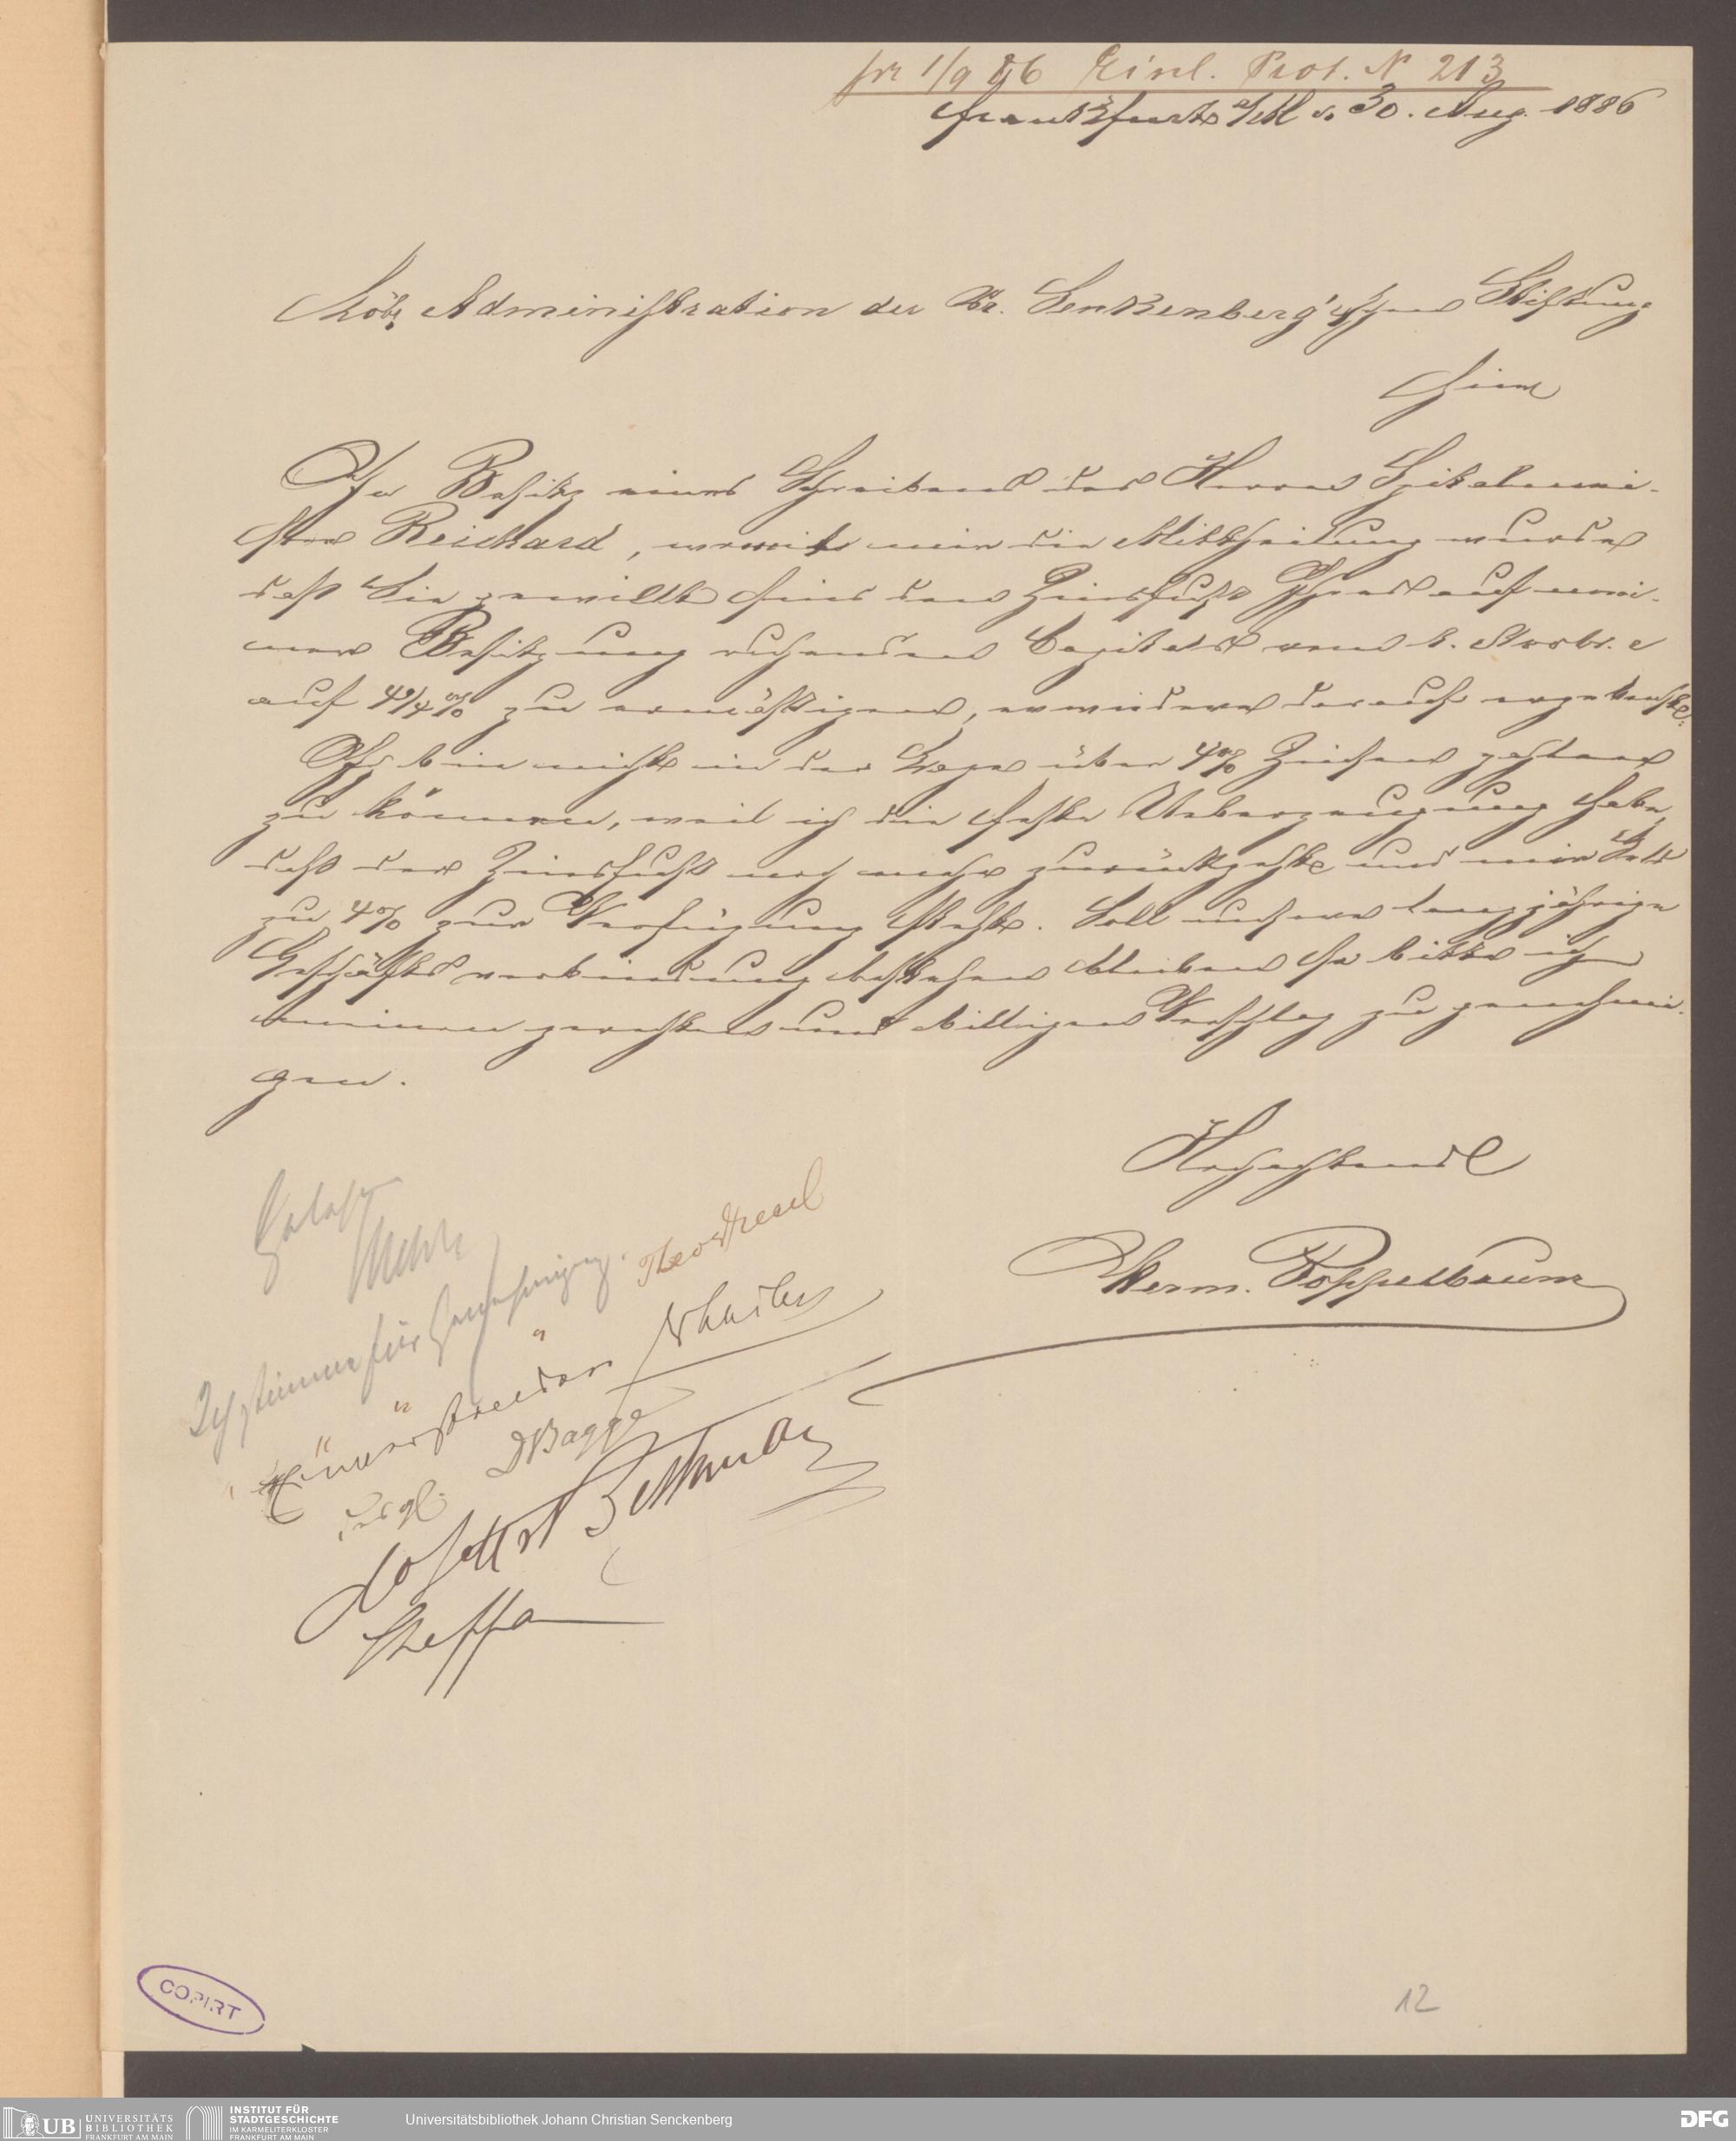 pr 1/9 86 Einl. Prot. N 213
Frankfurt a/M d. 30. Aug. 1886
Löbl. Administration der Dr. Senkenberg'schen Stiftung
hier
Im Besitz eines Schreibens des Herrn Spitalmei-
ster Reichard, womit mir die Mittheilung wurde
daß Sie gewillt sind den Zinsfuß Ihres auf mei-
ner Besitzung ruhenden Capitals vom 1. Novbr. c
auf 4 1/4 % zu ermäßigen, erwidere darauf ergebenst:
Ich bin nicht in der Lage über 4% Zinsen zahlen
zu können, weil ich die feste Ueberzeugung habe,
daß der Zinsfuß noch mehr zurückgeht und mir Geld
zu 4% zur Verfügung steht. Soll unsere langjährige
Geschäftsverbindung bestehen bleiben so bitte ich
meinen gerechten und billigen Vorschlag zu genehmi-
gen.
Hochachtend
Herm. Poppelbaum
Gelesen
Ich stimme für Genehmigung. Theod Ziehl
" " "
Einverstanden
desgl. DBagge
Steffan
COPIRT
12
UB UNIVERSITÄTS
BIBLIOTHEK
FRANKFURT AM MAIN
INSTITUT FÜR
STADTGESCHICHTE
IM KARMELITERKLOSTER
FRANKFURT AM MAIN
Universitätsbibliothek Johann Christian Senckenberg
DFG